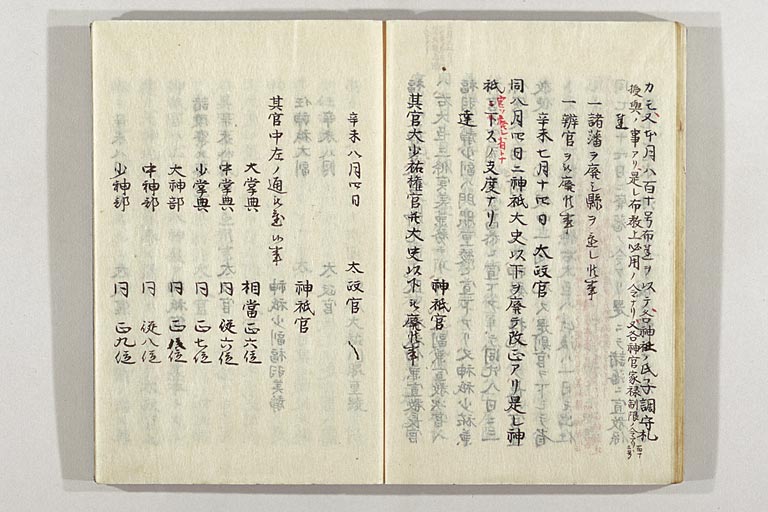 月八百十号布達ヲ以テ各神社ノ氏子調守札
授与ノ事アリ是レ布教上必用ノ令ナリ又各神官家禄制限ノ令アリ
達
一諸藩ヲ廃シ縣ヲ立レ候事
一辨官ヲ被廃候事
辛未七月十四日 太政官
同八月四日ニ神祇大史以下ヲ廃テ改正アリ是レ神
祇ヲ下スノ支度ナリ
達 神祇官
其官大少祐権官并大史以下被廃候事
辛未八月四日 太政官
神祇官
其官中左ノ通被置候事
大掌典 相當正六位
中掌典 同 従六位
少掌典 同 正七位
大神部 同 正八位
中神部 同 従八位
少神部 同 正九位